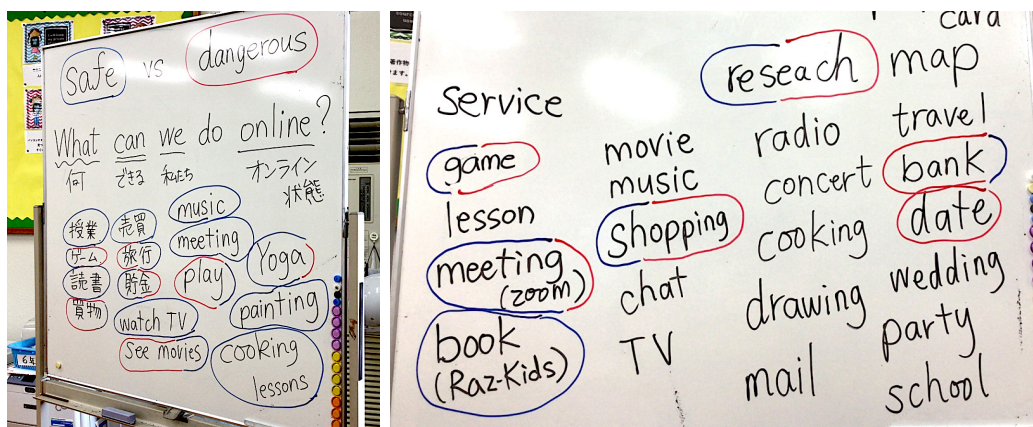 safe vs dangerous
What can we do online?
何 できる 私たち オンライン
状態
授業 売買 music
ゲーム 旅行 meeting Yoga
読書 貯金 play
買物 watch TV painting
see movies cooking
lessons
6年
card
reseach map
service
movie radio travel
game music concert bank
lesson shopping date
meeting cooking
(zoom) chat drawing wedding
book TV party
(Raz-Kids) mail school